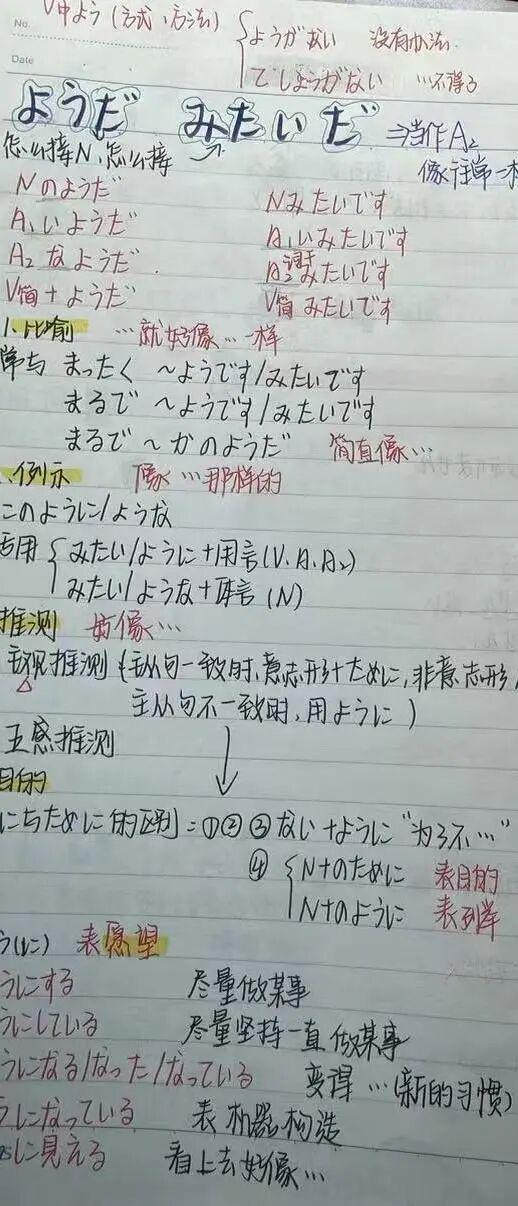 V中よう(方式、方法) ようがない 没有办法
No.
てしょうがない …不得了
Date
ようだ みたいだ ⇒当作A₂
怎么接N、怎么接 像往常一样
Nのようだ Nみたいです
A₁いようだ A₁いみたいです
A₂なようだ A₂词干みたいです
V简+ようだ V简みたいです
1.比喻 …就好像…一样
常与 まったく ~ようです/みたいです
まるで ~ようです/みたいです
まるで~かのようだ 简直像…
.例示 像…那样的
このように/ような
活用 みたい/ように+用言(V.A.A₂)
みたい/ような+体言(N)
推测 好像…
主观推测 (主从句一致时,意志形+ために,非意志形,
主从句不一致时,用ように)
五感推测
目的
にちために的区别=①②③ない+ように"为了不…"
④ N+のために 表目的
N+のように 表列举
うに) 表愿望
うにする 尽量做某事
うにしている 尽量坚持一直做某事
うになる/なった/なっている 变得…(新的习惯)
うになっている 表机器构造
に見える 看上去好像…